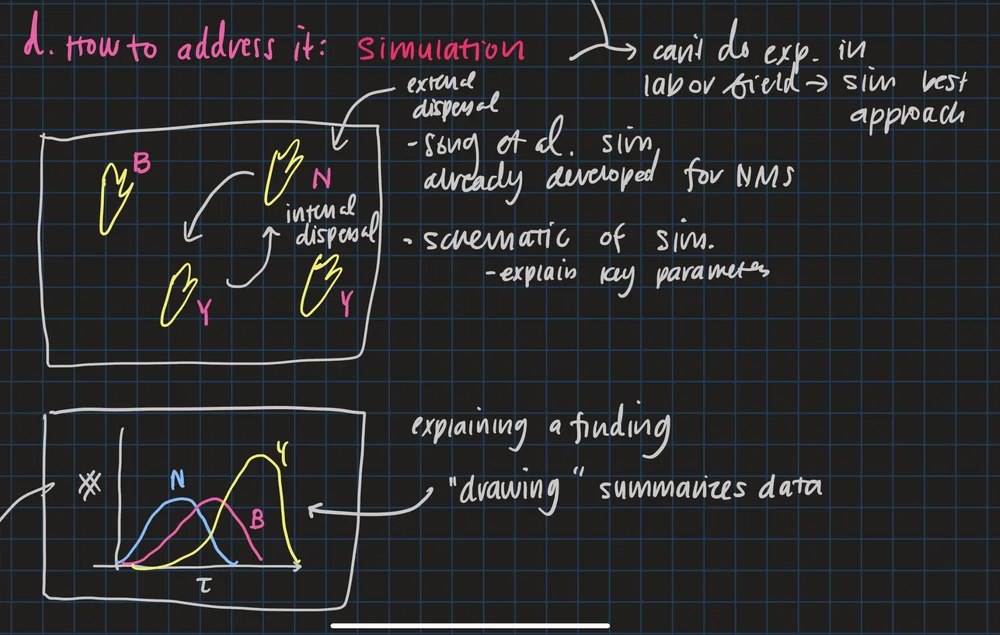 d. How to address it: Simulation
can't do exp. in
lab or field → sim best
approach
external
dispersal
- Song et al. sim,
already developed for NMS
• schematic of sim.
- explain key parameters
B
N
internal
dispersal
Y
Y
explaining a finding
"drawing" summarizes data
#
N
Y
B
τ